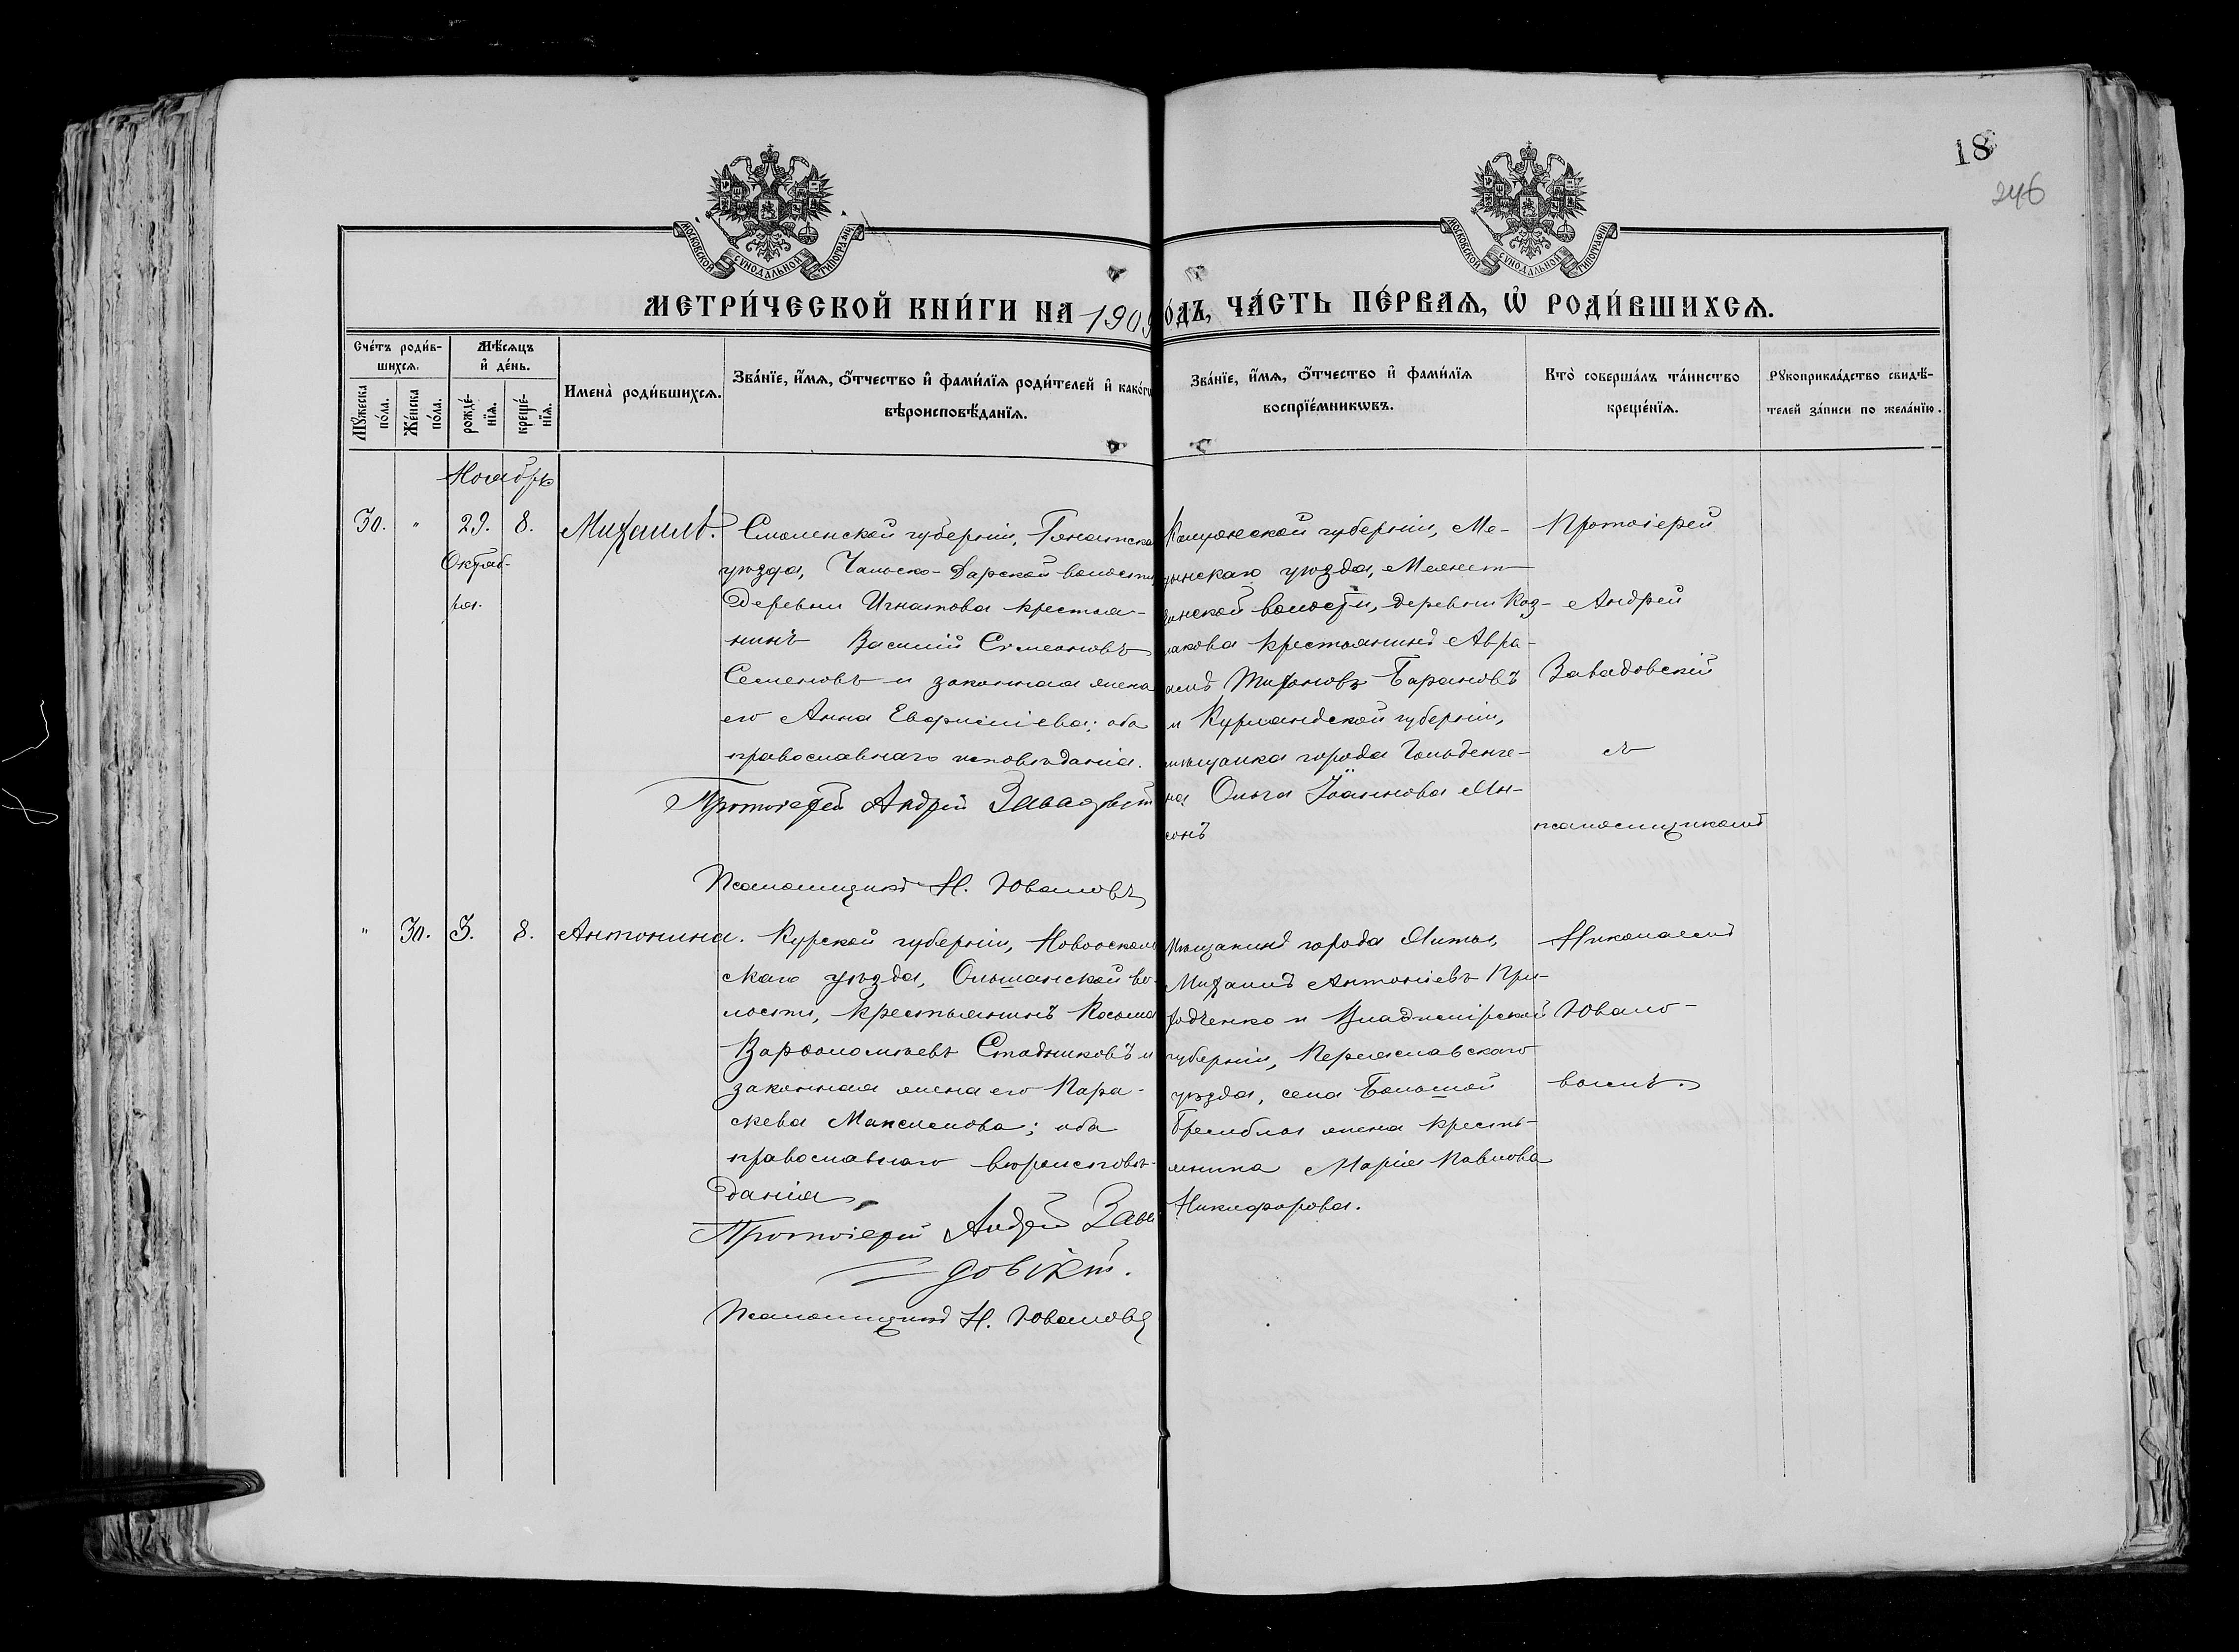 18
246
МОСКОВСКОЙ СѴНОДАЛЬНОЙ ТИПОГРАФІИ
МОСКОВСКОЙ СѴНОДАЛЬНОЙ ТИПОГРАФІИ
МЕТРИ́ЧЕСКОЙ КНИ́ГИ НА 1909 О́ДЪ, ЧА́СТЬ ПЕ́РВАѦ, Ѡ҆ РОДИ́ВШИХСѦ.
Сче́тъ роди́в-
шихсѧ.
Мꙋ́жеска по́ла.
Же́нска по́ла.
Мѣ́сѧцъ
и҆ де́нь.
рожде́-
нїѧ.
креще́-
нїѧ.
Имена̀ роди́вшихсѧ.
Зва́нїе, и҆́мѧ, ѻ҆́тчество и҆ фами́лїѧ роди́телей и҆ како́гѡ
вѣроисповѣ́данїѧ.
Зва́нїе, и҆́мѧ, ѻ҆́тчество и҆ фами́лїѧ
воспрїе́мникѡвъ.
Кто̀ соверша́лъ та́инство
креще́нїѧ.
Рꙋкоприкла́дство свидѣ́-
телей за́писи по жела́нїю.
Ноябрь
30. " 29. 8. Михаилъ.
Октяб-
ря.
Смоленской губерніи, Гжатска
уѣзда, Чальско-Дарской волости
деревни Игнатова крестья-
нинъ Василій Симеоновъ
Семеновъ и законная жена
его Анна ; оба
православнаго исповѣданія.
Протоіерей Андрей Завадовскій
Псаломщикъ Н. Юваловъ
Калужской губерніи, Ме-
дынскаго уѣзда,
волости, деревни Коз-
лакова крестьянинъ Авра-
амъ Тихоновъ Барановъ
и Курляндской губерніи,
мѣщанка города Гольденге-
на Ольга Іоаннова Ян-
сонъ
Протоіерей
Андрей
Завадовскій
съ
псаломщикомъ
" 30. 3. 8. Антонина.
Курской губерніи, Новооскол
скаго уѣзда, Ольшанской во-
лости, крестьянинъ Косьма
Варѳоломѣевъ Стадниковъ и
законная жена его Пара-
скева Максимова; оба
православнаго вѣроисповѣ-
данія.
Протоіерей Андрей Зава
довскій.
Псаломщикъ Н. Юваловъ
Мѣщанинъ города Ялты,
Михаилъ Антоніевъ При-
ходченко и Владимірской
губерніи, Переяславскаго
уѣзда, села Большой
Брембола жена кресть-
янина Марія Павлова
Никифорова.
Николаемъ
Ювало-
вымъ.